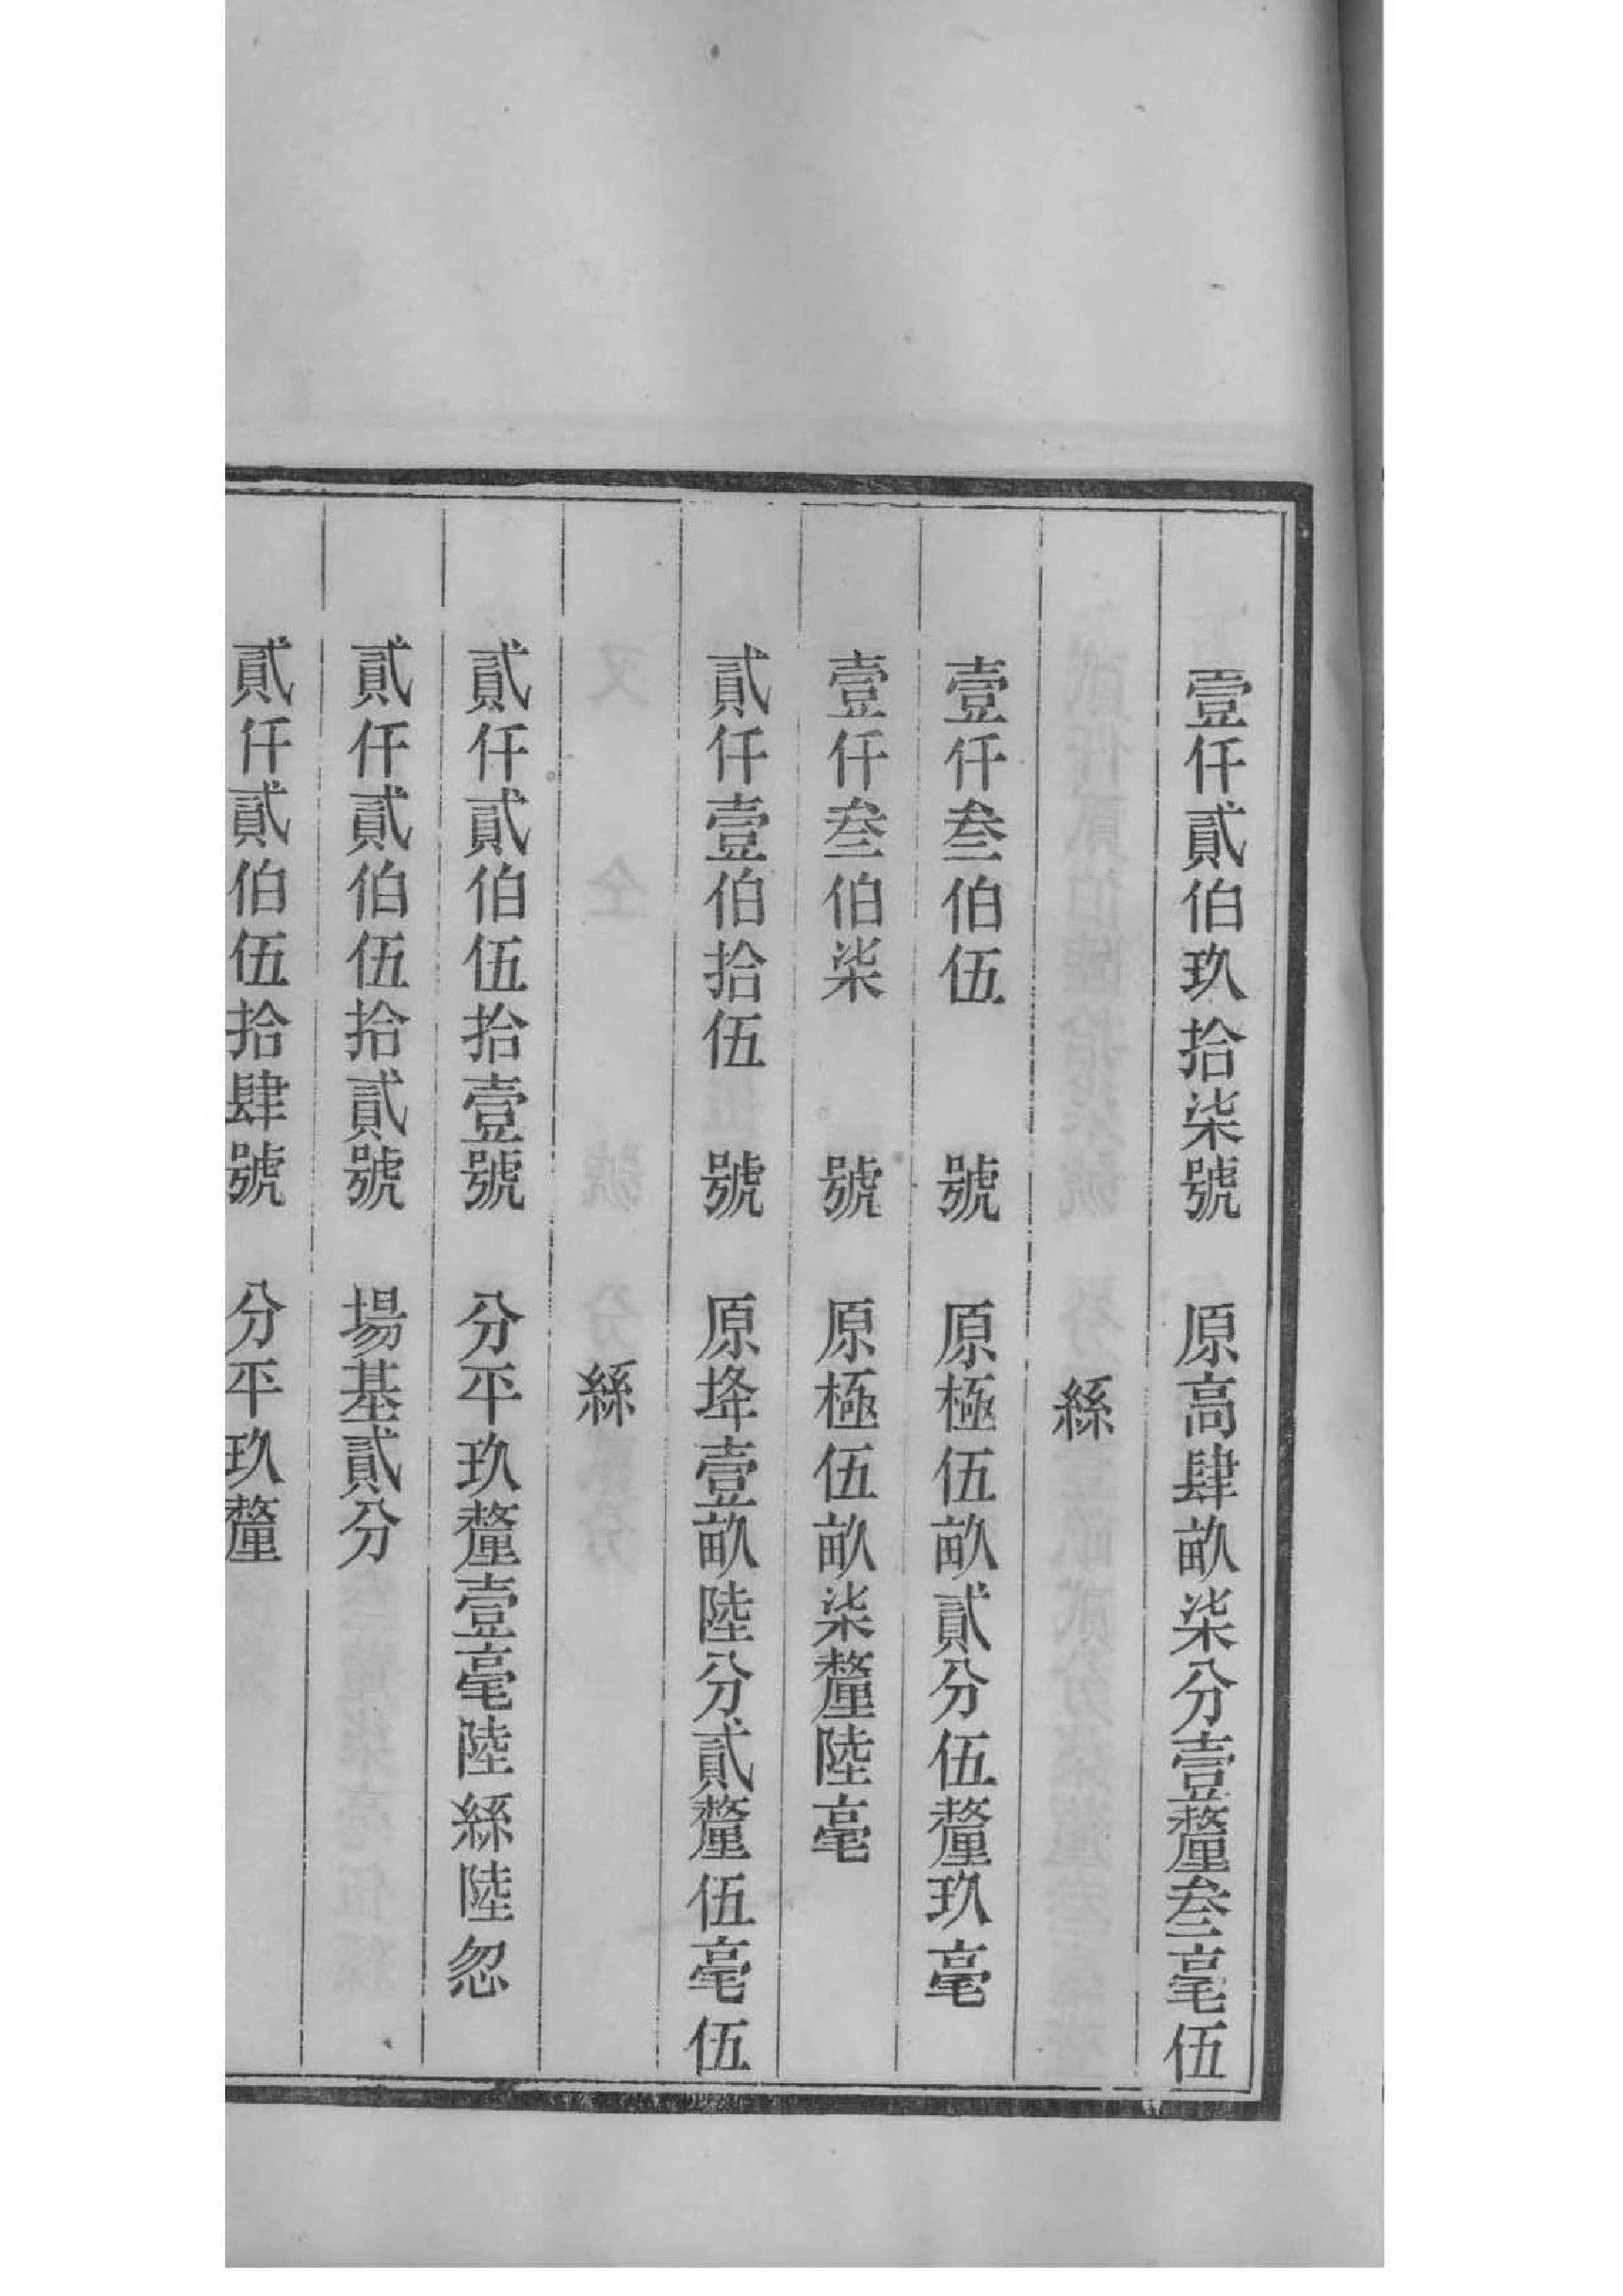 壹仟貳伯玖拾柒號　原高肆畝柒分壹釐叁毫伍
絲
壹仟叁伯伍　號　原極伍畝貳分伍釐玖毫
壹仟叁伯柒　號　原極伍畝柒釐陸毫
貳仟壹伯拾伍　號　原夅壹畝陸分貳釐伍毫伍
絲
貳仟貳伯伍拾壹號　分平玖釐壹毫陸絲陸忽
貳仟貳伯伍拾貳號　場基貳分
貳仟貳伯伍拾肆號　分平玖釐